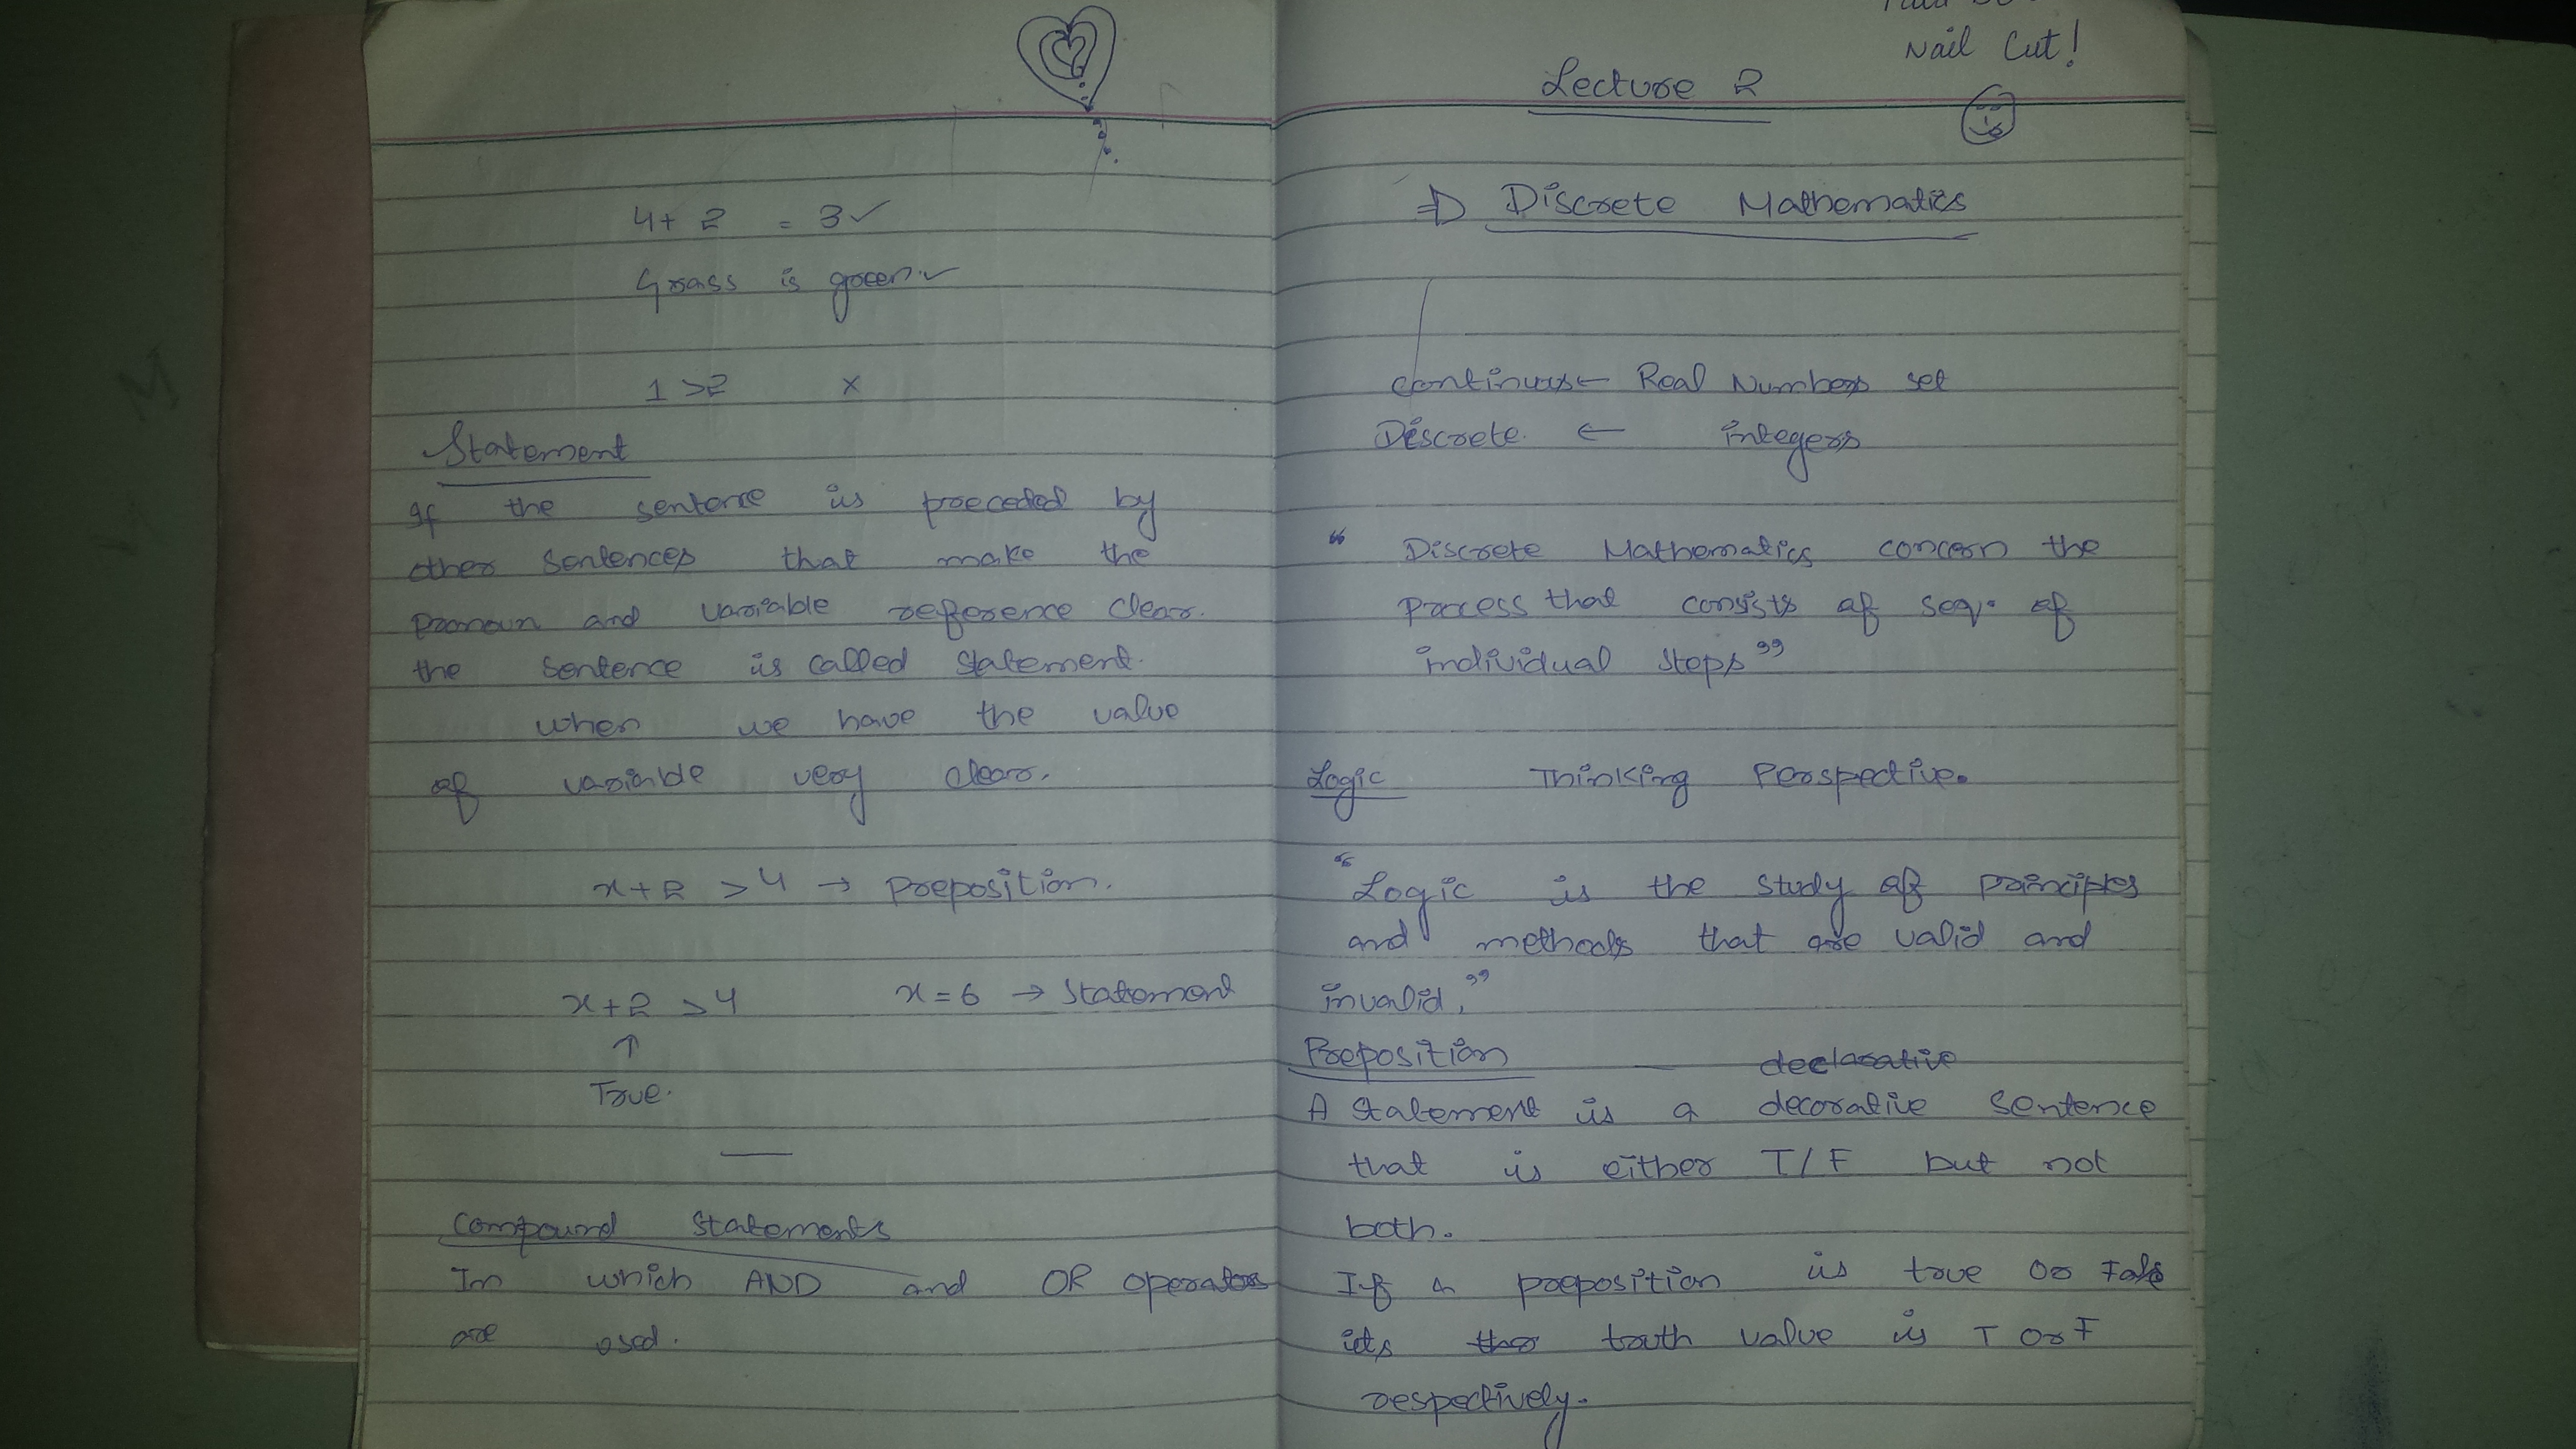 4+ 2 = 3 ✓
Grass is green. ✓
1 >2 x
Statement
If the sentence is preceded by
other sentences that make the
pronoun and variable reference clear.
the sentence is called statement.
when we have the value
of variable very clear.
x+2 >4 → Preposition.
x+2 >4 x=6 → Statement
↑
True.
Compound Statements
In which AND and OR operators
are used.
Nail Cut!
Lecture 2
⇒ Discrete Mathematics
continuus ← Real Numbers set
Discrete. ← integers
“ Discrete Mathematics concern the
process that consists of seq. of
individual steps ”
Logic Thinking Perspective.
“ Logic is the study of principles
and methods that are valid and
invalid. ”
Preposition declarative
A statement is a decorative sentence
that is either T/F but not
both.
If a preposition is true or False
its truth value is T or F
respectively.